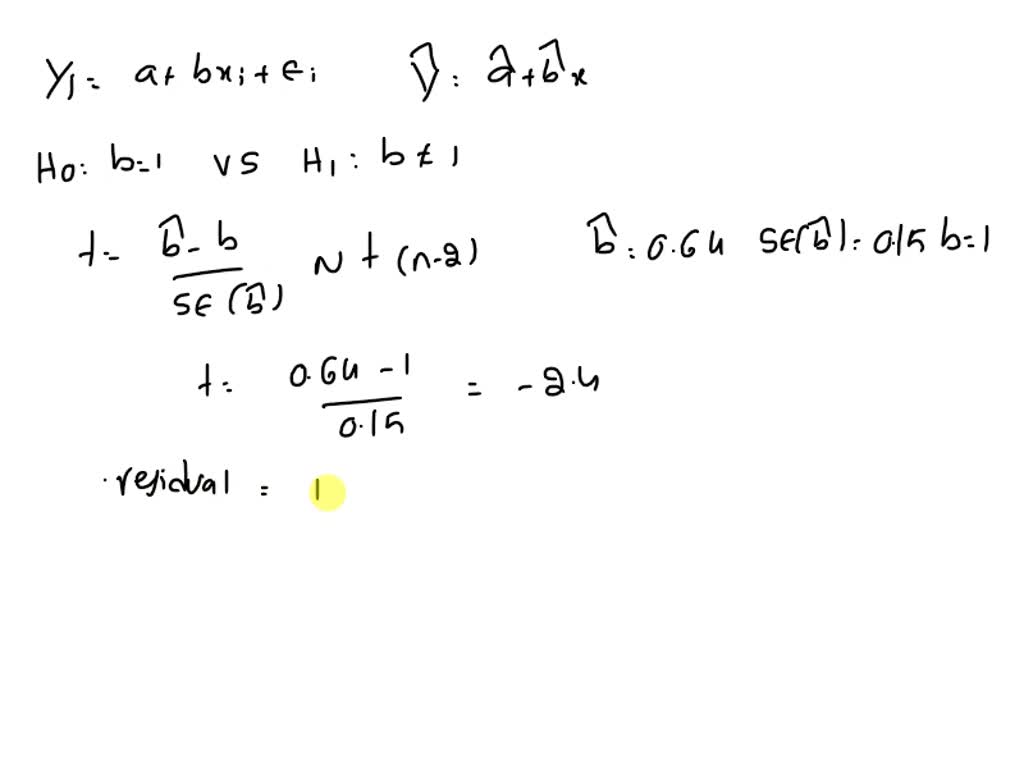 Yi = a + bxi + ei    Ŷ = â + b̂x
H0: b=1 VS H1: b≠1
t = (b̂ - b) / SE(b̂) ~ t(n-2)    b̂ = 0.64 SE(b̂) = 0.15 b=1
t = (0.64 - 1) / 0.15 = -2.4
residual = 1